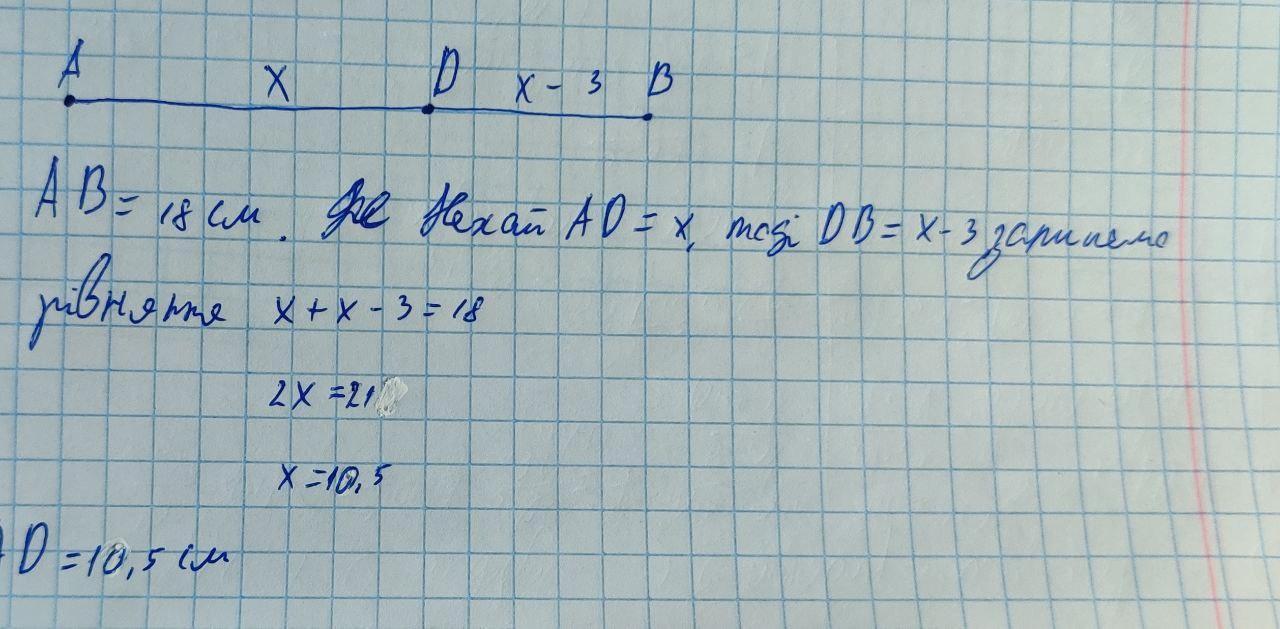 A x D x - 3 B
AB = 18 см. Нехай AD = x, тоді DB = x - 3 запишемо
рівняння x + x - 3 = 18
2x = 21
x = 10,5
AD = 10,5 см